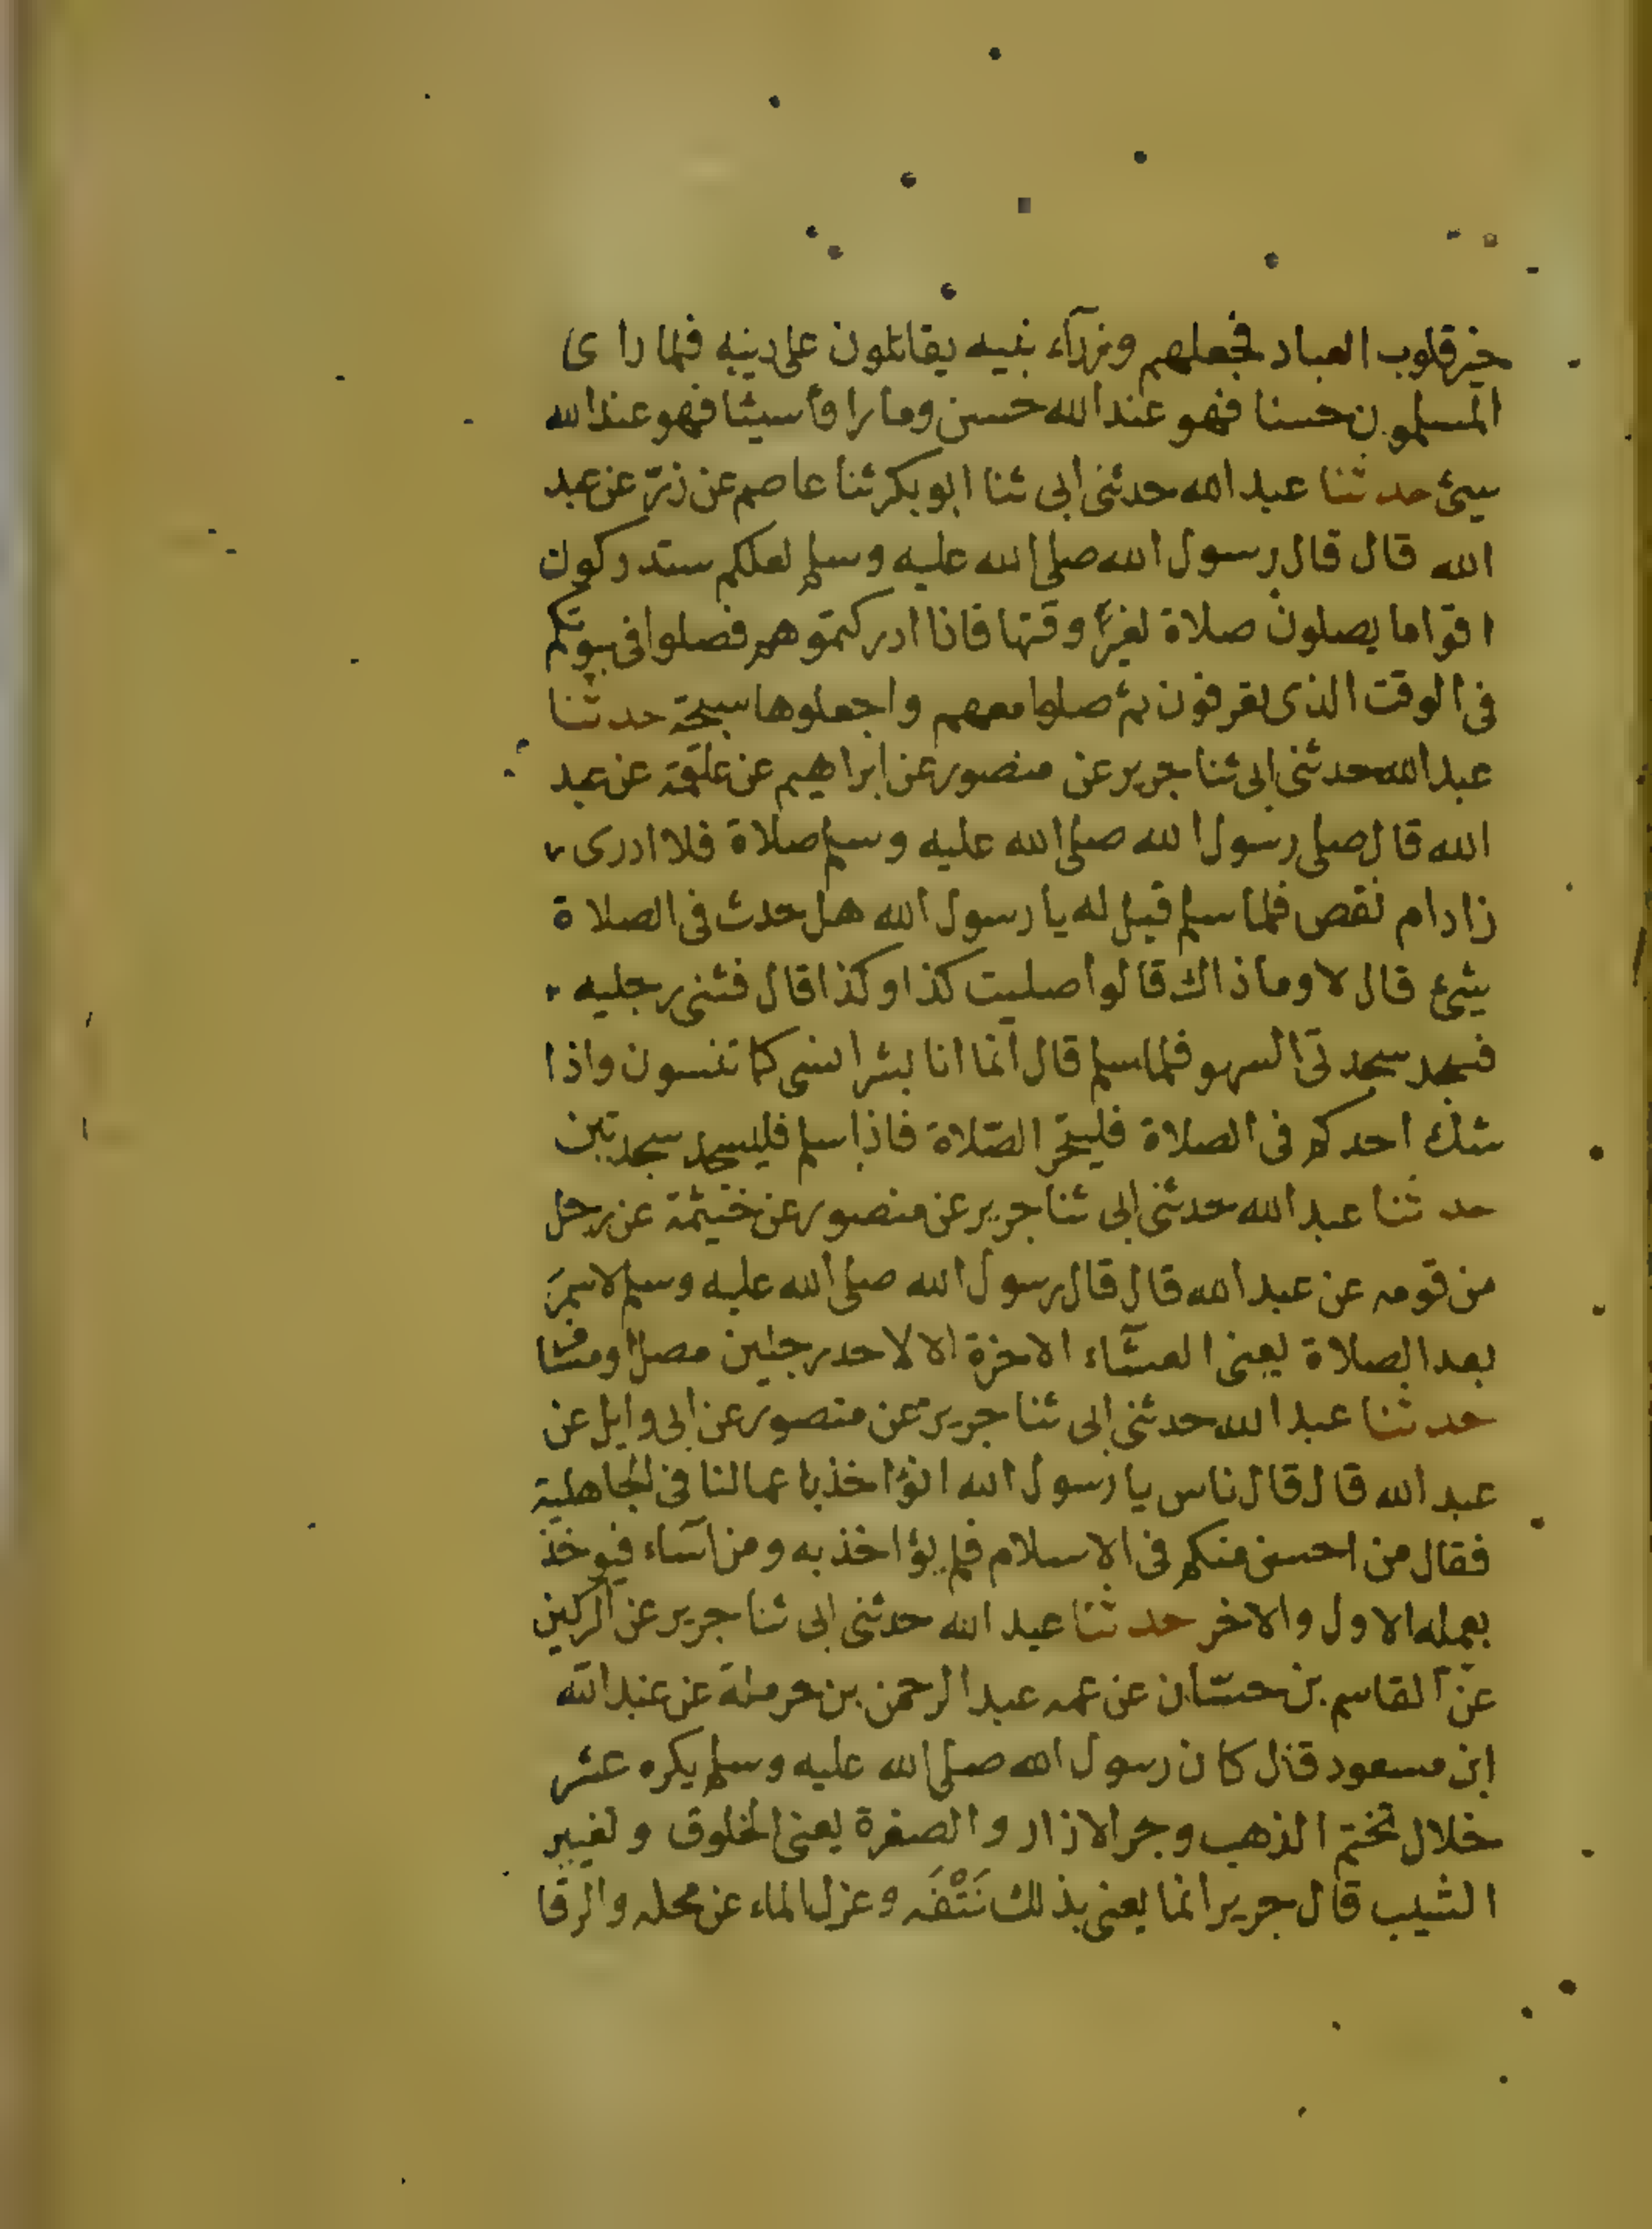 خير قلوب العباد فجعلهم وزرآء نبيه يقاتلون على دينه فلما راى
المسلمون حسنا فهو عند الله حسن وما راوا سيئا فهو عند الله
سيئ حدثنا عبد الله حدثنى ابى ثنا ابو بكر ثنا عاصم عن زرّ عن عبد
الله قال قال رسول الله صلى الله عليه وسلم لعلكم ستدركون
اقواما يصلون صلاة لغير وقتها فاذا ادركتموهم فصلوا فى بيوتكم
فى الوقت الذى تعرفون ثم صلوا معهم واجعلوها سبحة حدثنا
عبد الله حدثنى ابى ثنا جرير عن منصور عن ابراهيم عن علقمة عن عبد
الله قال صلى رسول الله صلى الله عليه وسلم صلاة فلا ادرى
زاد ام نقص فلما سلم قيل له يا رسول الله هل حدث فى الصلاة
شيئ قال لا وما ذاك قالوا صليت كذا وكذا قال فثنى رجليه
فسجد سجدتى السهو فلما سلم قال انما انا بشر انسى كما تنسون واذا
شك احدكم فى الصلاة فليتحر الصّلاة فاذا سلم فليسجد سجدتين
حدثنا عبد الله حدثنى ابى ثنا جرير عن منصور عن خيثمة عن رجل
من قومه عن عبد الله قال قال رسول الله صلى الله عليه وسلم لا سمر
بعد الصلاة يعنى العشآء الاخرة الا لاحد رجلين مصل او مسافر
حدثنا عبد الله حدثنى ابى ثنا جرير عن منصور عن ابى وايل عن
عبد الله قال قال ناس يا رسول الله انؤاخذ باعمالنا فى الجاهلية
فقال من احسن منكم فى الاسلام فلم يؤاخذ به ومن اسآء فيوخذ
بعمله الاول والاخر حدثنا عبد الله حدثنى ابى ثنا جرير عن الركين
عن القاسم بن حسّان عن عمه عبد الرحمن بن حرملة عن عبد الله
ابن مسعود قال كان رسول الله صلى الله عليه وسلم يكره عشر
خلال تختم الذهب وجر الازار والصفرة يعنى الخلوق وتغيير
الشيب قال جرير انما يعنى بذلك نَتْفَه وعزل الماء عن محله والرقا